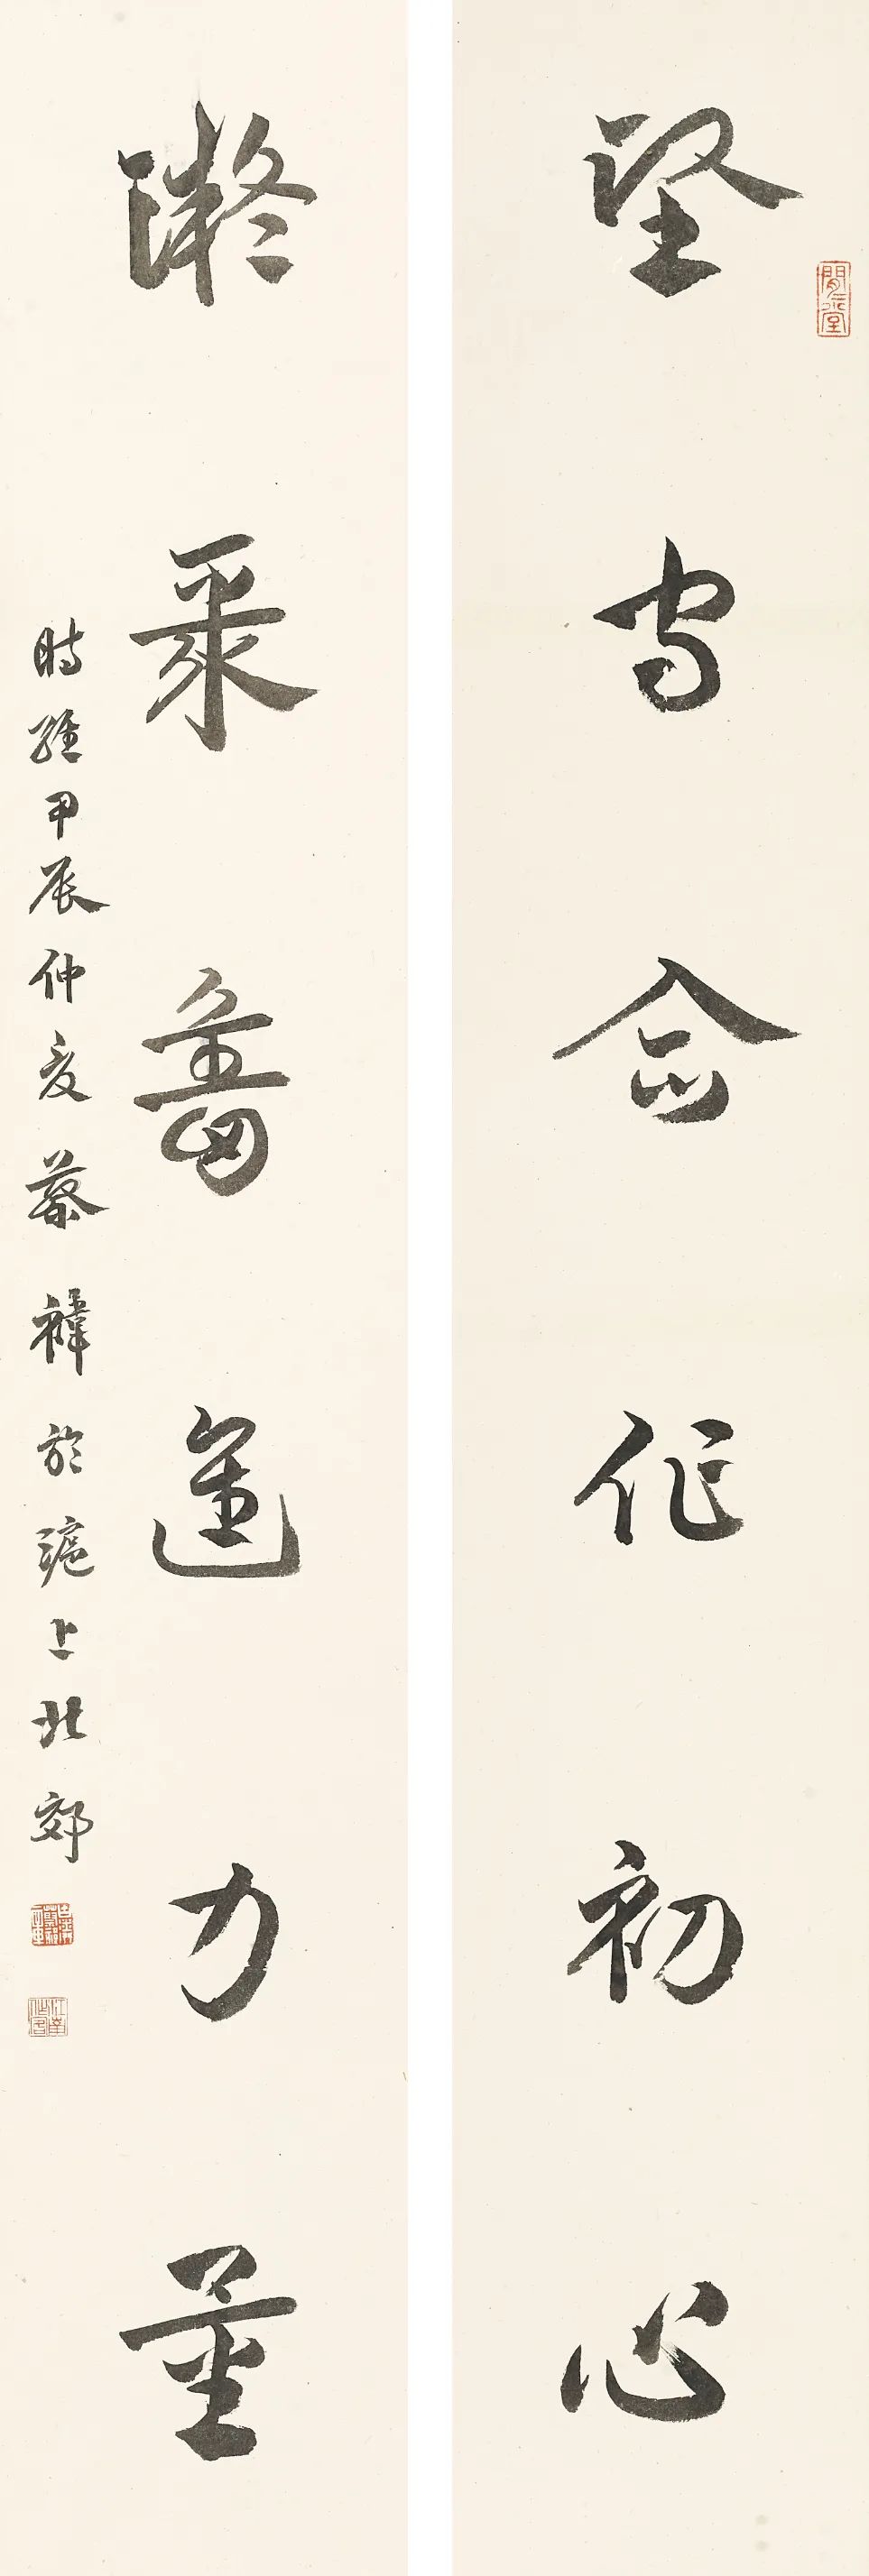 堅守合作初心
凝聚奮進力量
時維甲辰仲夏蔡禕於滬上北郊